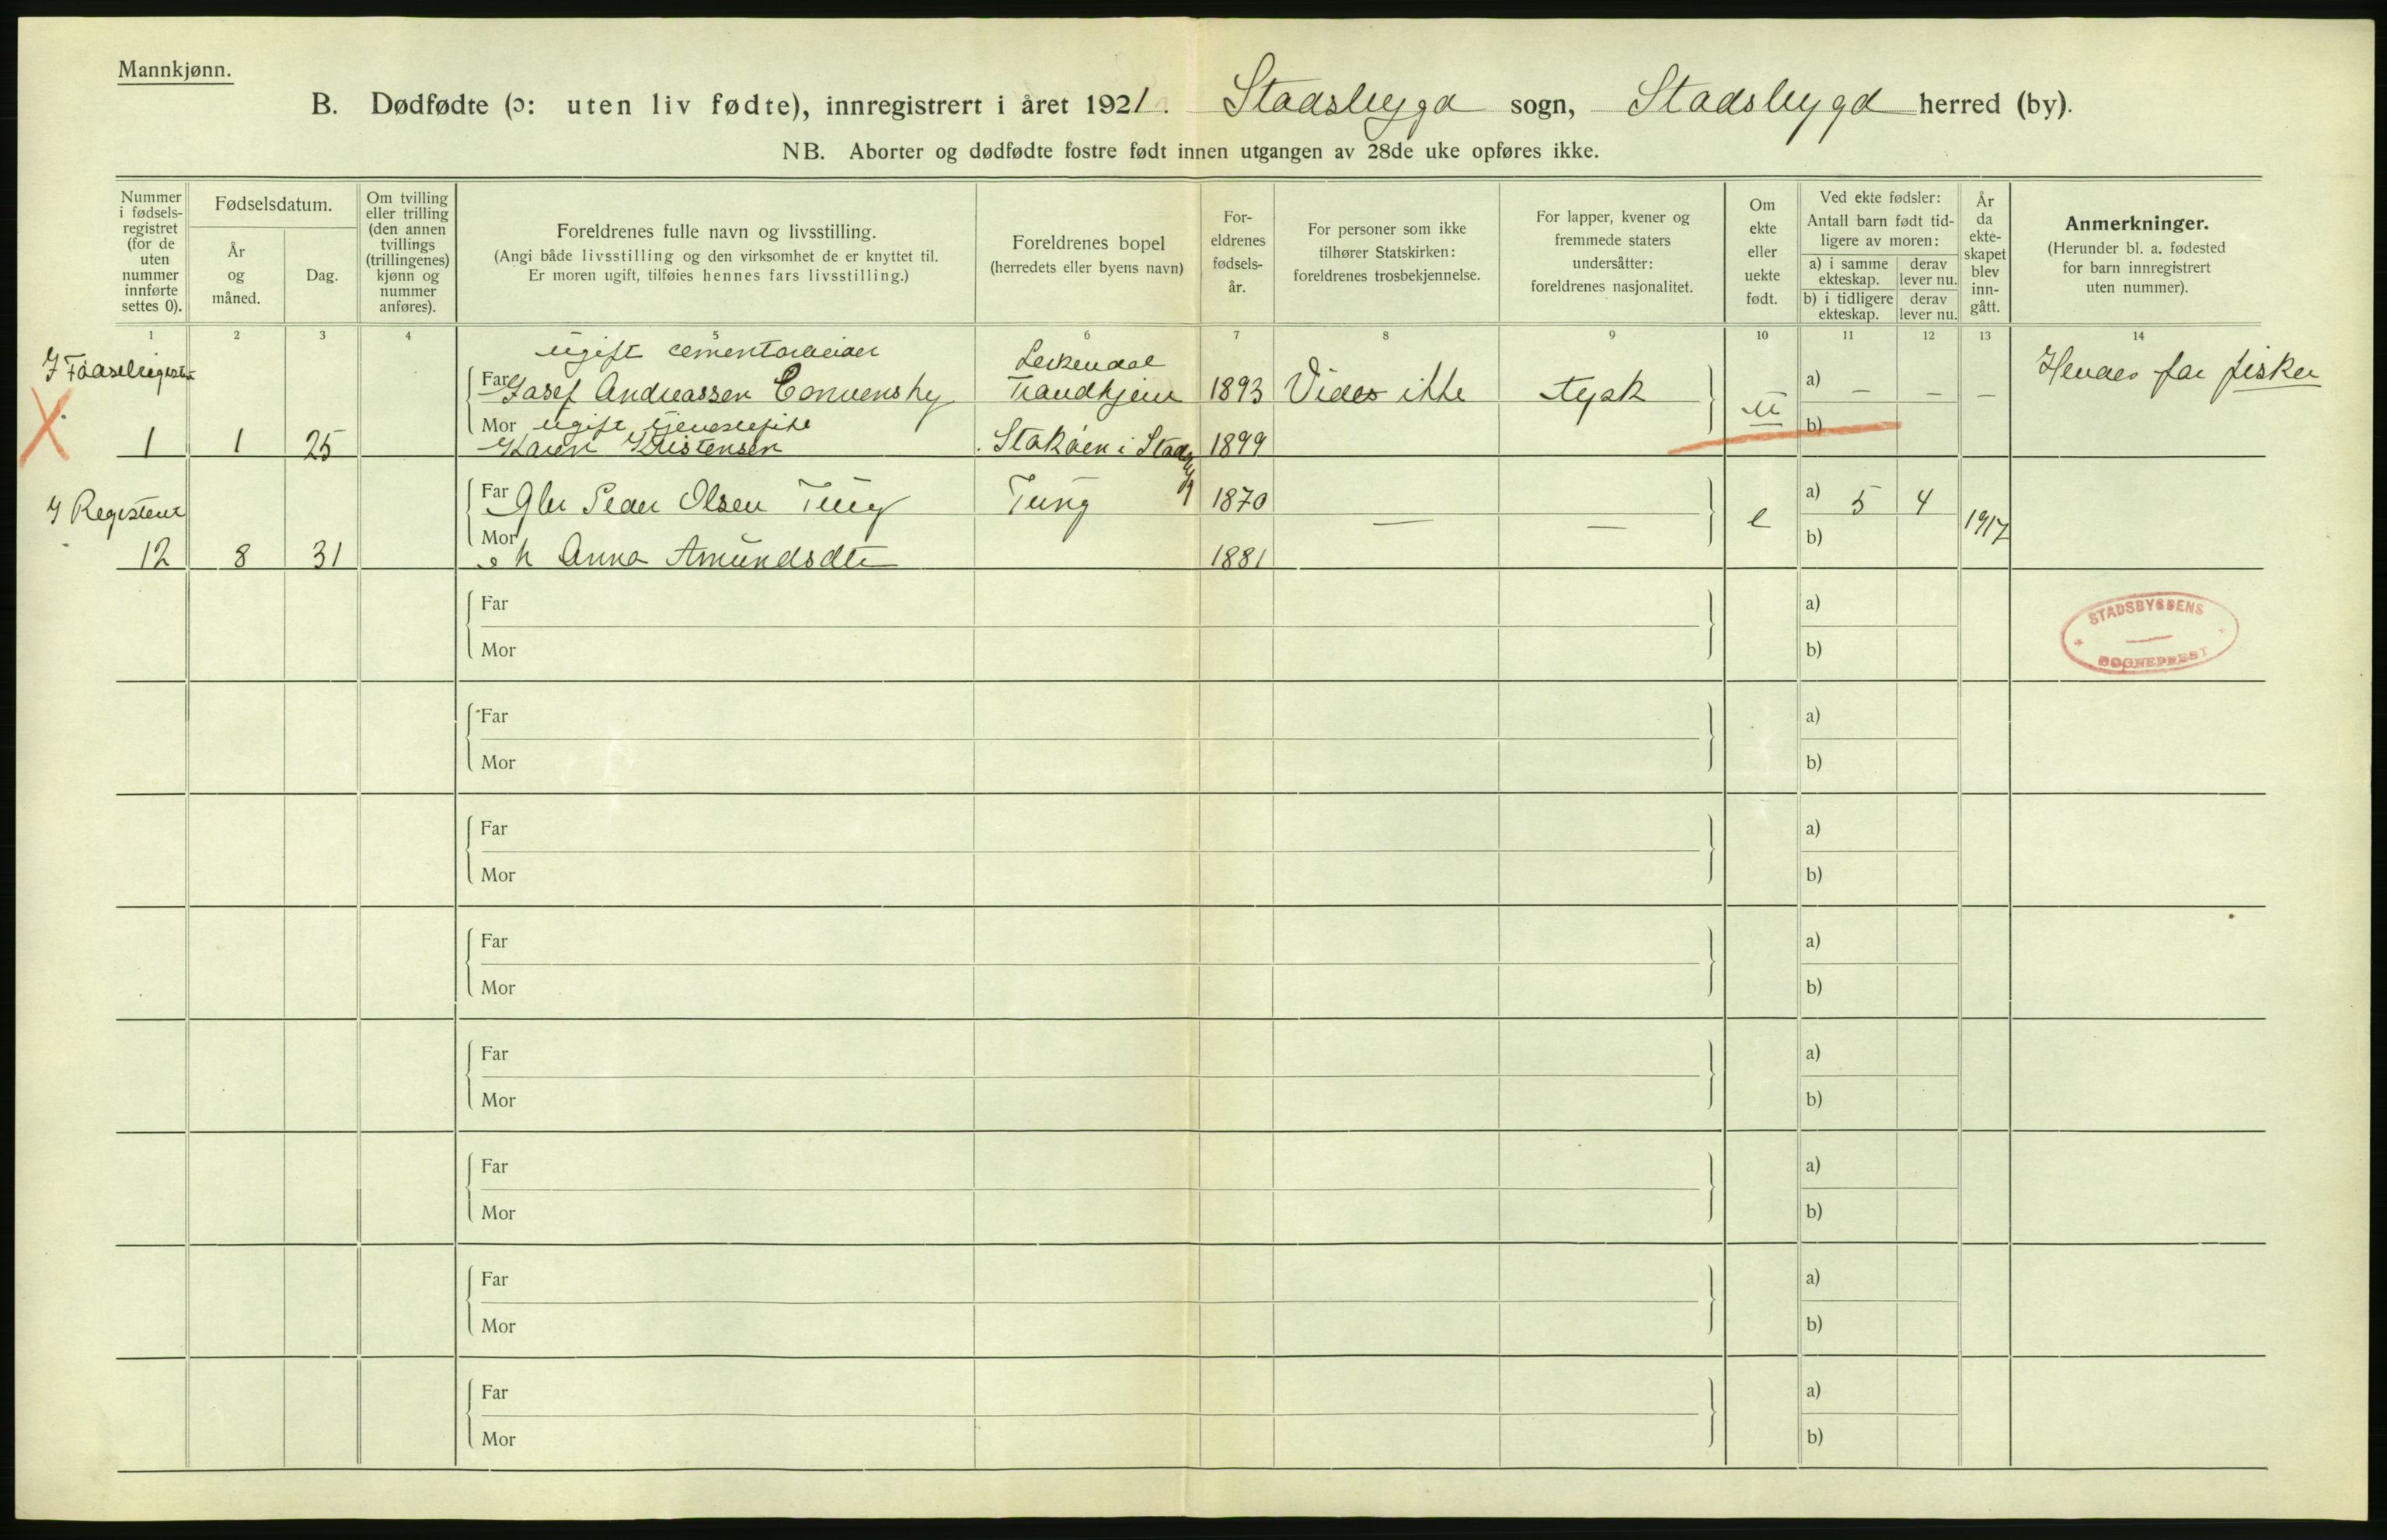 Mannkjønn.
B. Dødfødte (ɔ: uten liv fødte), innregistrert i året 1921. Stadsbygd sogn, Stadsbygd herred (by).
NB. Aborter og dødfødte fostre født innen utgangen av 28de uke opføres ikke.
Nummer i fødsels-registret (for de uten nummer innførte settes 0).
Fødselsdatum.
År og måned.
Dag.
Om tvilling eller trilling (den annen tvillings (trillingenes) kjønn og nummer anføres).
Foreldrenes fulle navn og livsstilling.
(Angi både livsstilling og den virksomhet de er knyttet til.
Er moren ugift, tilføies hennes fars livsstilling.)
Foreldrenes bopel
(herredets eller byens navn)
For-eldrenes fødsels-år.
For personer som ikke tilhører Statskirken: foreldrenes trosbekjennelse.
For lapper, kvener og fremmede staters undersåtter: foreldrenes nasjonalitet.
Om ekte eller uekte født.
Ved ekte fødsler:
Antall barn født tid-ligere av moren:
a) i samme ekteskap. derav lever nu.
b) i tidligere ekteskap. derav lever nu.
År da ekte-skapet blev inn-gått.
Anmerkninger.
(Herunder bl. a. fødested for barn innregistrert uten nummer).
1 2 3 4 5 6 7 8 9 10 11 12 13 14
ugift cementarbeider
Far Josef Andreassen 1893 Vides ikke tysk u a) — — — Hendes far fisker
Trondhjem
Mor ugift tjenestepike b)
1 1 25 Karen Kristensen i Stadsbygd 1899
I Registeret
Far Gbr Peder Olsen Tung Tung 1870 — — e a) 5 4 1917
Mor b)
12 8 31 h Anna Amundsdtr 1881
Far a)
Mor b)
STADSBYGDENS
SOGNEPREST
Far a)
Mor b)
Far a)
Mor b)
Far a)
Mor b)
Far a)
Mor b)
Far a)
Mor b)
Far a)
Mor b)
Far a)
Mor b)